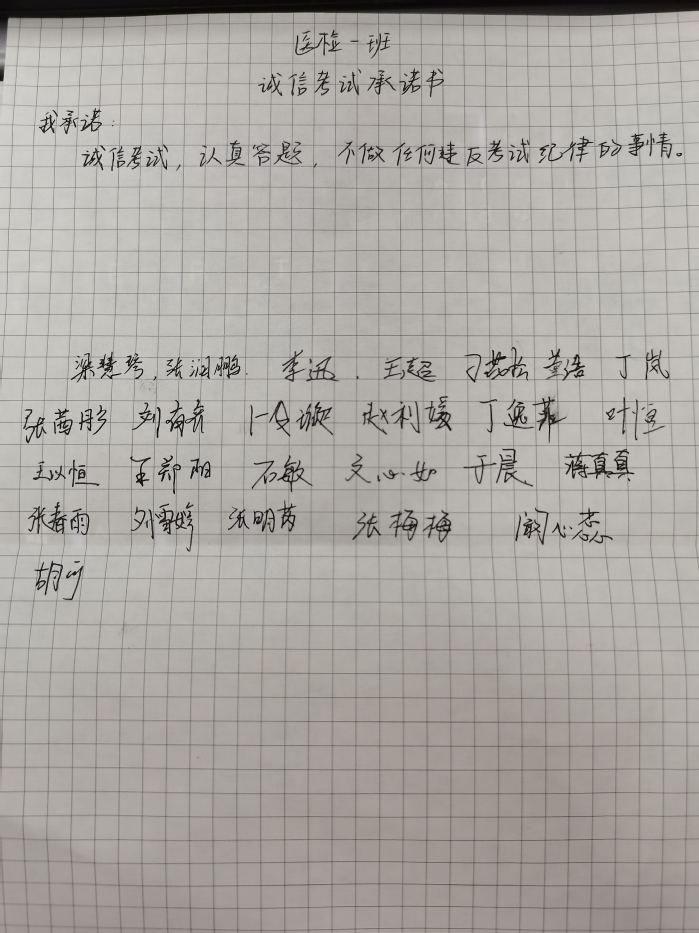 医检一班
诚信考试承诺书
我承诺:
诚信考试,认真答题,不做任何违反考试纪律的事情。
梁慧琴,张润鹏.李迅.王超 董浩 丁岚
张茜彤 刘 赵利媛 丁逸菲 叶恒
王以恒 王郑阳 石敏 文心如 于晨 蒋真真
张春雨 刘雪婷 张明芮 张梅梅 阚心蕊
胡可